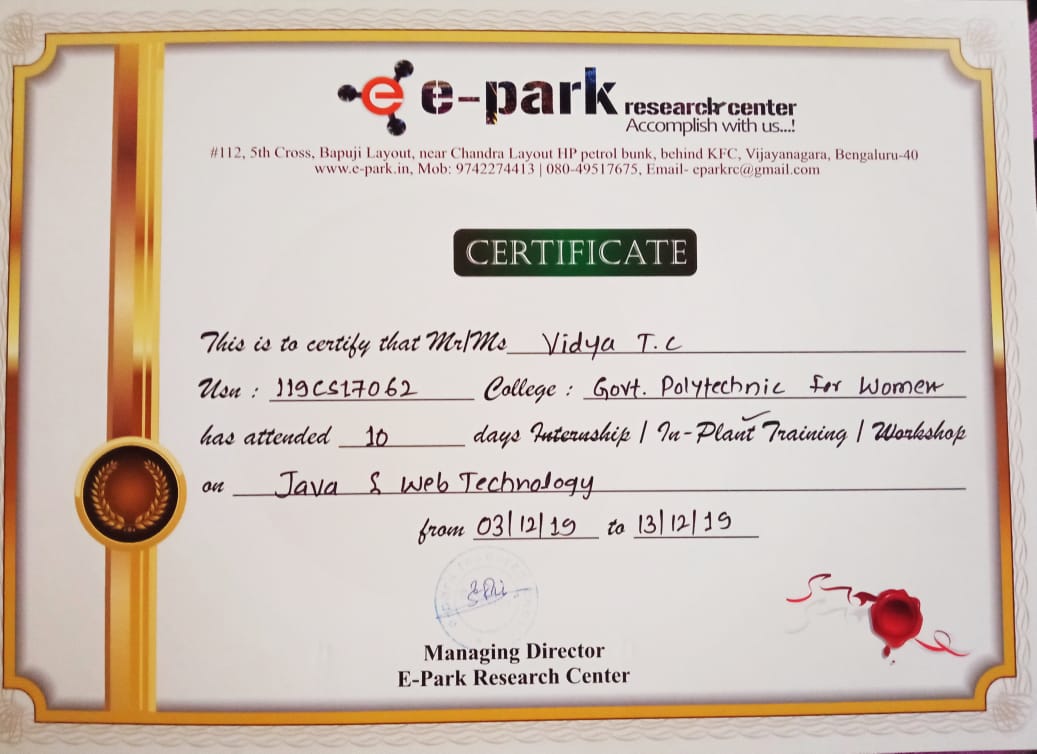 e e-park research center
Accomplish with us...!
#112, 5th Cross, Bapuji Layout, near Chandra Layout HP petrol bunk, behind KFC, Vijayanagara, Bengaluru-40
www.e-park.in, Mob: 9742274413 | 080-49517675, Email- eparkrc@gmail.com
CERTIFICATE
This is to certify that Mr/Ms Vidya T.C
Usn : 119CS17062 College : Govt. Polytechnic for Women
has attended 10 days Internship | In-Plant Training | Workshop
on Java & Web Technology
from 03/12/19 to 13/12/19
Managing Director
E-Park Research Center